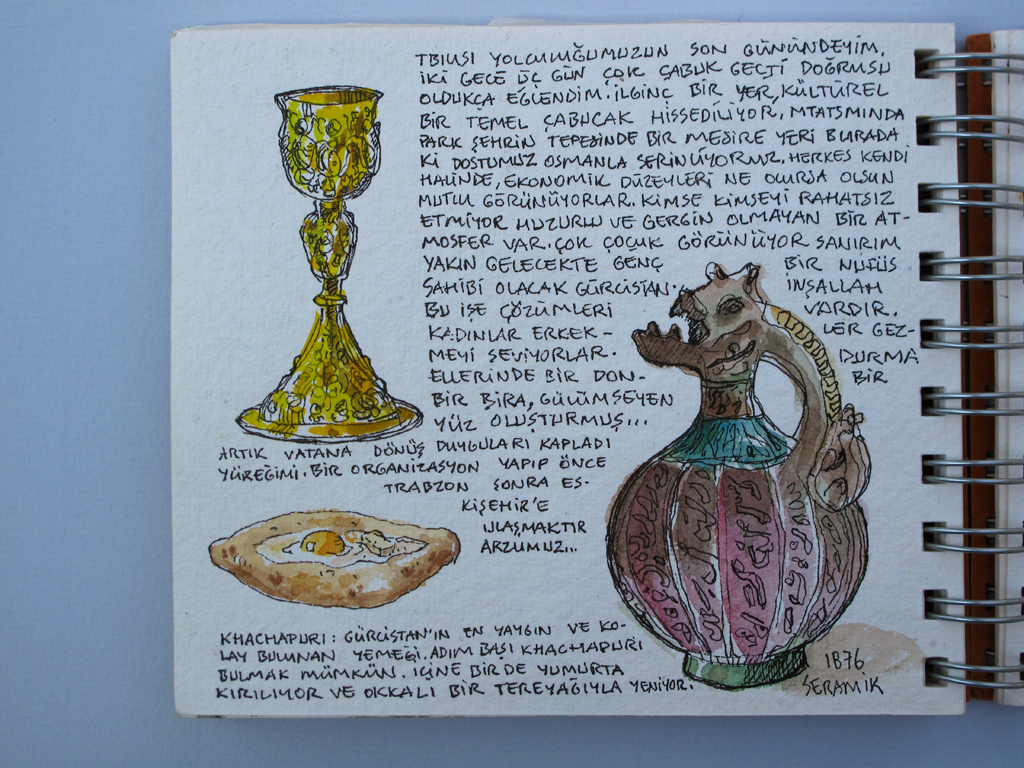 TBILISI YOLCULUĞUMUZUN SON GÜNÜNDEYİM.
İKİ GECE ÜÇ GÜN ÇOK ÇABUK GEÇTİ DOĞRUSU
OLDUKÇA EĞLENDİM. İLGİNÇ BİR YER, KÜLTÜREL
BİR TEMEL ÇABUCAK HİSSEDİLİYOR. MTATSMINDA
PARK ŞEHRİN TEPESİNDE BİR MESİRE YERİ BURADA
Kİ DOSTUMUZ OSMANLA SERİNLİYORUZ. HERKES KENDİ
HALİNDE, EKONOMİK DÜZEYLERİ NE OLURSA OLSUN
MUTLU GÖRÜNÜYORLAR. KİMSE KİMSEYİ RAHATSIZ
ETMİYOR HUZURLU VE GERGİN OLMAYAN BİR AT-
MOSFER VAR. ÇOK ÇOCUK GÖRÜNÜYOR SANIRIM
YAKIN GELECEKTE GENÇ BİR NÜFUS
SAHİBİ OLACAK GÜRCİSTAN. İNŞALLAH
BU İŞE ÇÖZÜMLERİ VARDIR.
KADINLAR ERKEK- LER GEZ-
MEYİ SEVİYORLAR. DURMA
ELLERİNDE BİR DON- BİR
BİR BİRA, GÜLÜMSEYEN
YÜZ OLUŞTURMUŞ...
ARTIK VATANA DÖNÜŞ DUYGULARI KAPLADI
YÜREĞİMİ. BİR ORGANİZASYON YAPIP ÖNCE
TRABZON SONRA ES-
KİŞEHİR'E
ULAŞMAKTIR
ARZUMUZ...
KHACHAPURI: GÜRCİSTAN'IN EN YAYGIN VE KO-
LAY BULUNAN YEMEĞİ. ADIM BAŞI KHACHAPURI
BULMAK MÜMKÜN. İÇİNE BİR DE YUMURTA
KIRILIYOR VE OKKALI BİR TEREYAĞIYLA YENİYOR.
1876
SERAMİK